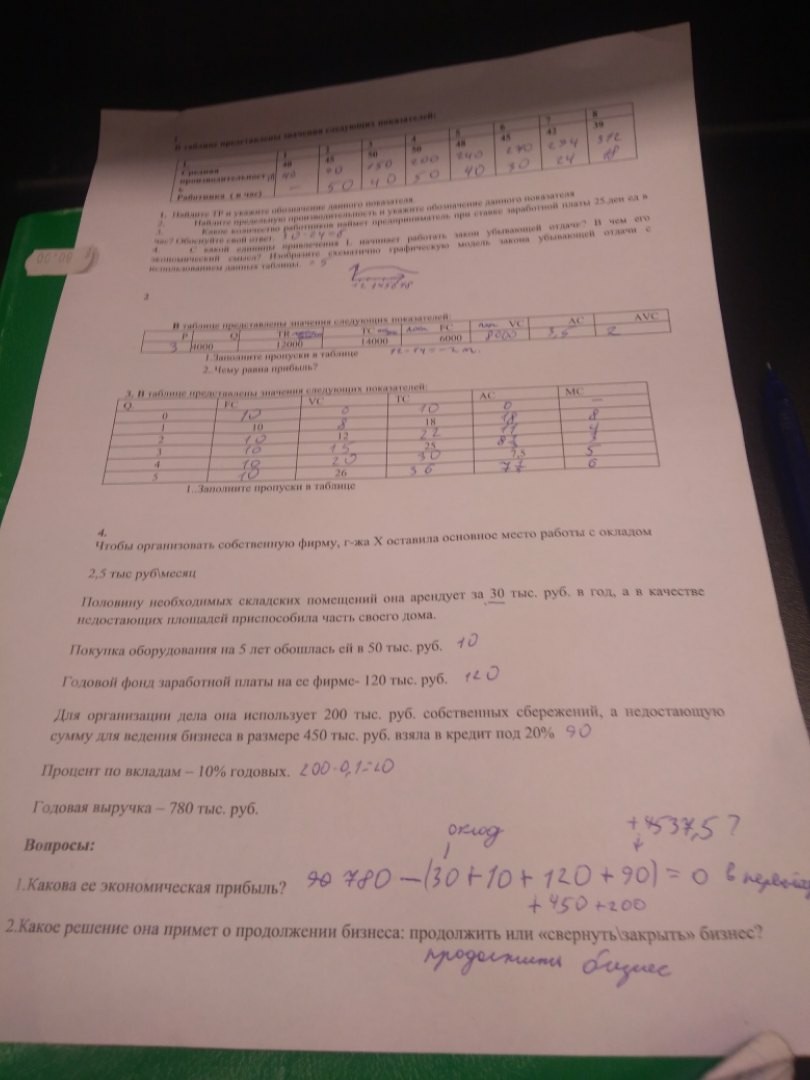 В таблице представлены значения следующих показателей:
L 1 2 3 4 5 6 7 8
Средняя производительность 40 45 50 50 48 45 42 39
90 150 200 240 270 294 312
Работника ( в час) — 50 40 50 40 30 24 18
1. Найдите TP и укажите обозначение данного показателя.
2. Найдите предельную производительность и укажите обозначение данного показателя
3. Какое количество работников наймет предприниматель при ставке заработной платы 25 ден ед в
час? Обоснуйте свой ответ.
4. С какой единицы привлечения L начинает работать закон убывающей отдачи? В чем его
экономический смысл? Изобразите схематично графическую модель закона убывающей отдачи с
использованием данных таблицы.
2
В таблице представлены значения следующих показателей:
P Q TR TC FC VC AC AVC
3 4000 12000 14000 6000 8000 3,5 2
1.Заполните пропуски в таблице
2..Чему равна прибыль?
3. В таблице представлены значения следующих показателей:
Q FC VC TC AC MC
0 10 0 10 0 —
1 10 8 18 18 8
2 10 12 22 11 4
3 10 15 25
4 10 20 30 7,5 5
5 10 26 36 6
1..Заполните пропуски в таблице
4.
Чтобы организовать собственную фирму, г-жа X оставила основное место работы с окладом
2,5 тыс руб\месяц
Половину необходимых складских помещений она арендует за 30 тыс. руб. в год, а в качестве
недостающих площадей приспособила часть своего дома.
Покупка оборудования на 5 лет обошлась ей в 50 тыс. руб. 10
Годовой фонд заработной платы на ее фирме- 120 тыс. руб. 120
Для организации дела она использует 200 тыс. руб. собственных сбережений, а недостающую
сумму для ведения бизнеса в размере 450 тыс. руб. взяла в кредит под 20% 90
Процент по вкладам – 10% годовых. 200·0,1=20
Годовая выручка – 780 тыс. руб.
Вопросы:
оклад +4537,5 ?
1.Какова ее экономическая прибыль? 780 —(30+10+120+90) = 0 в
+450+200
2.Какое решение она примет о продолжении бизнеса: продолжить или «свернуть\закрыть» бизнес?
продолжить бизнес